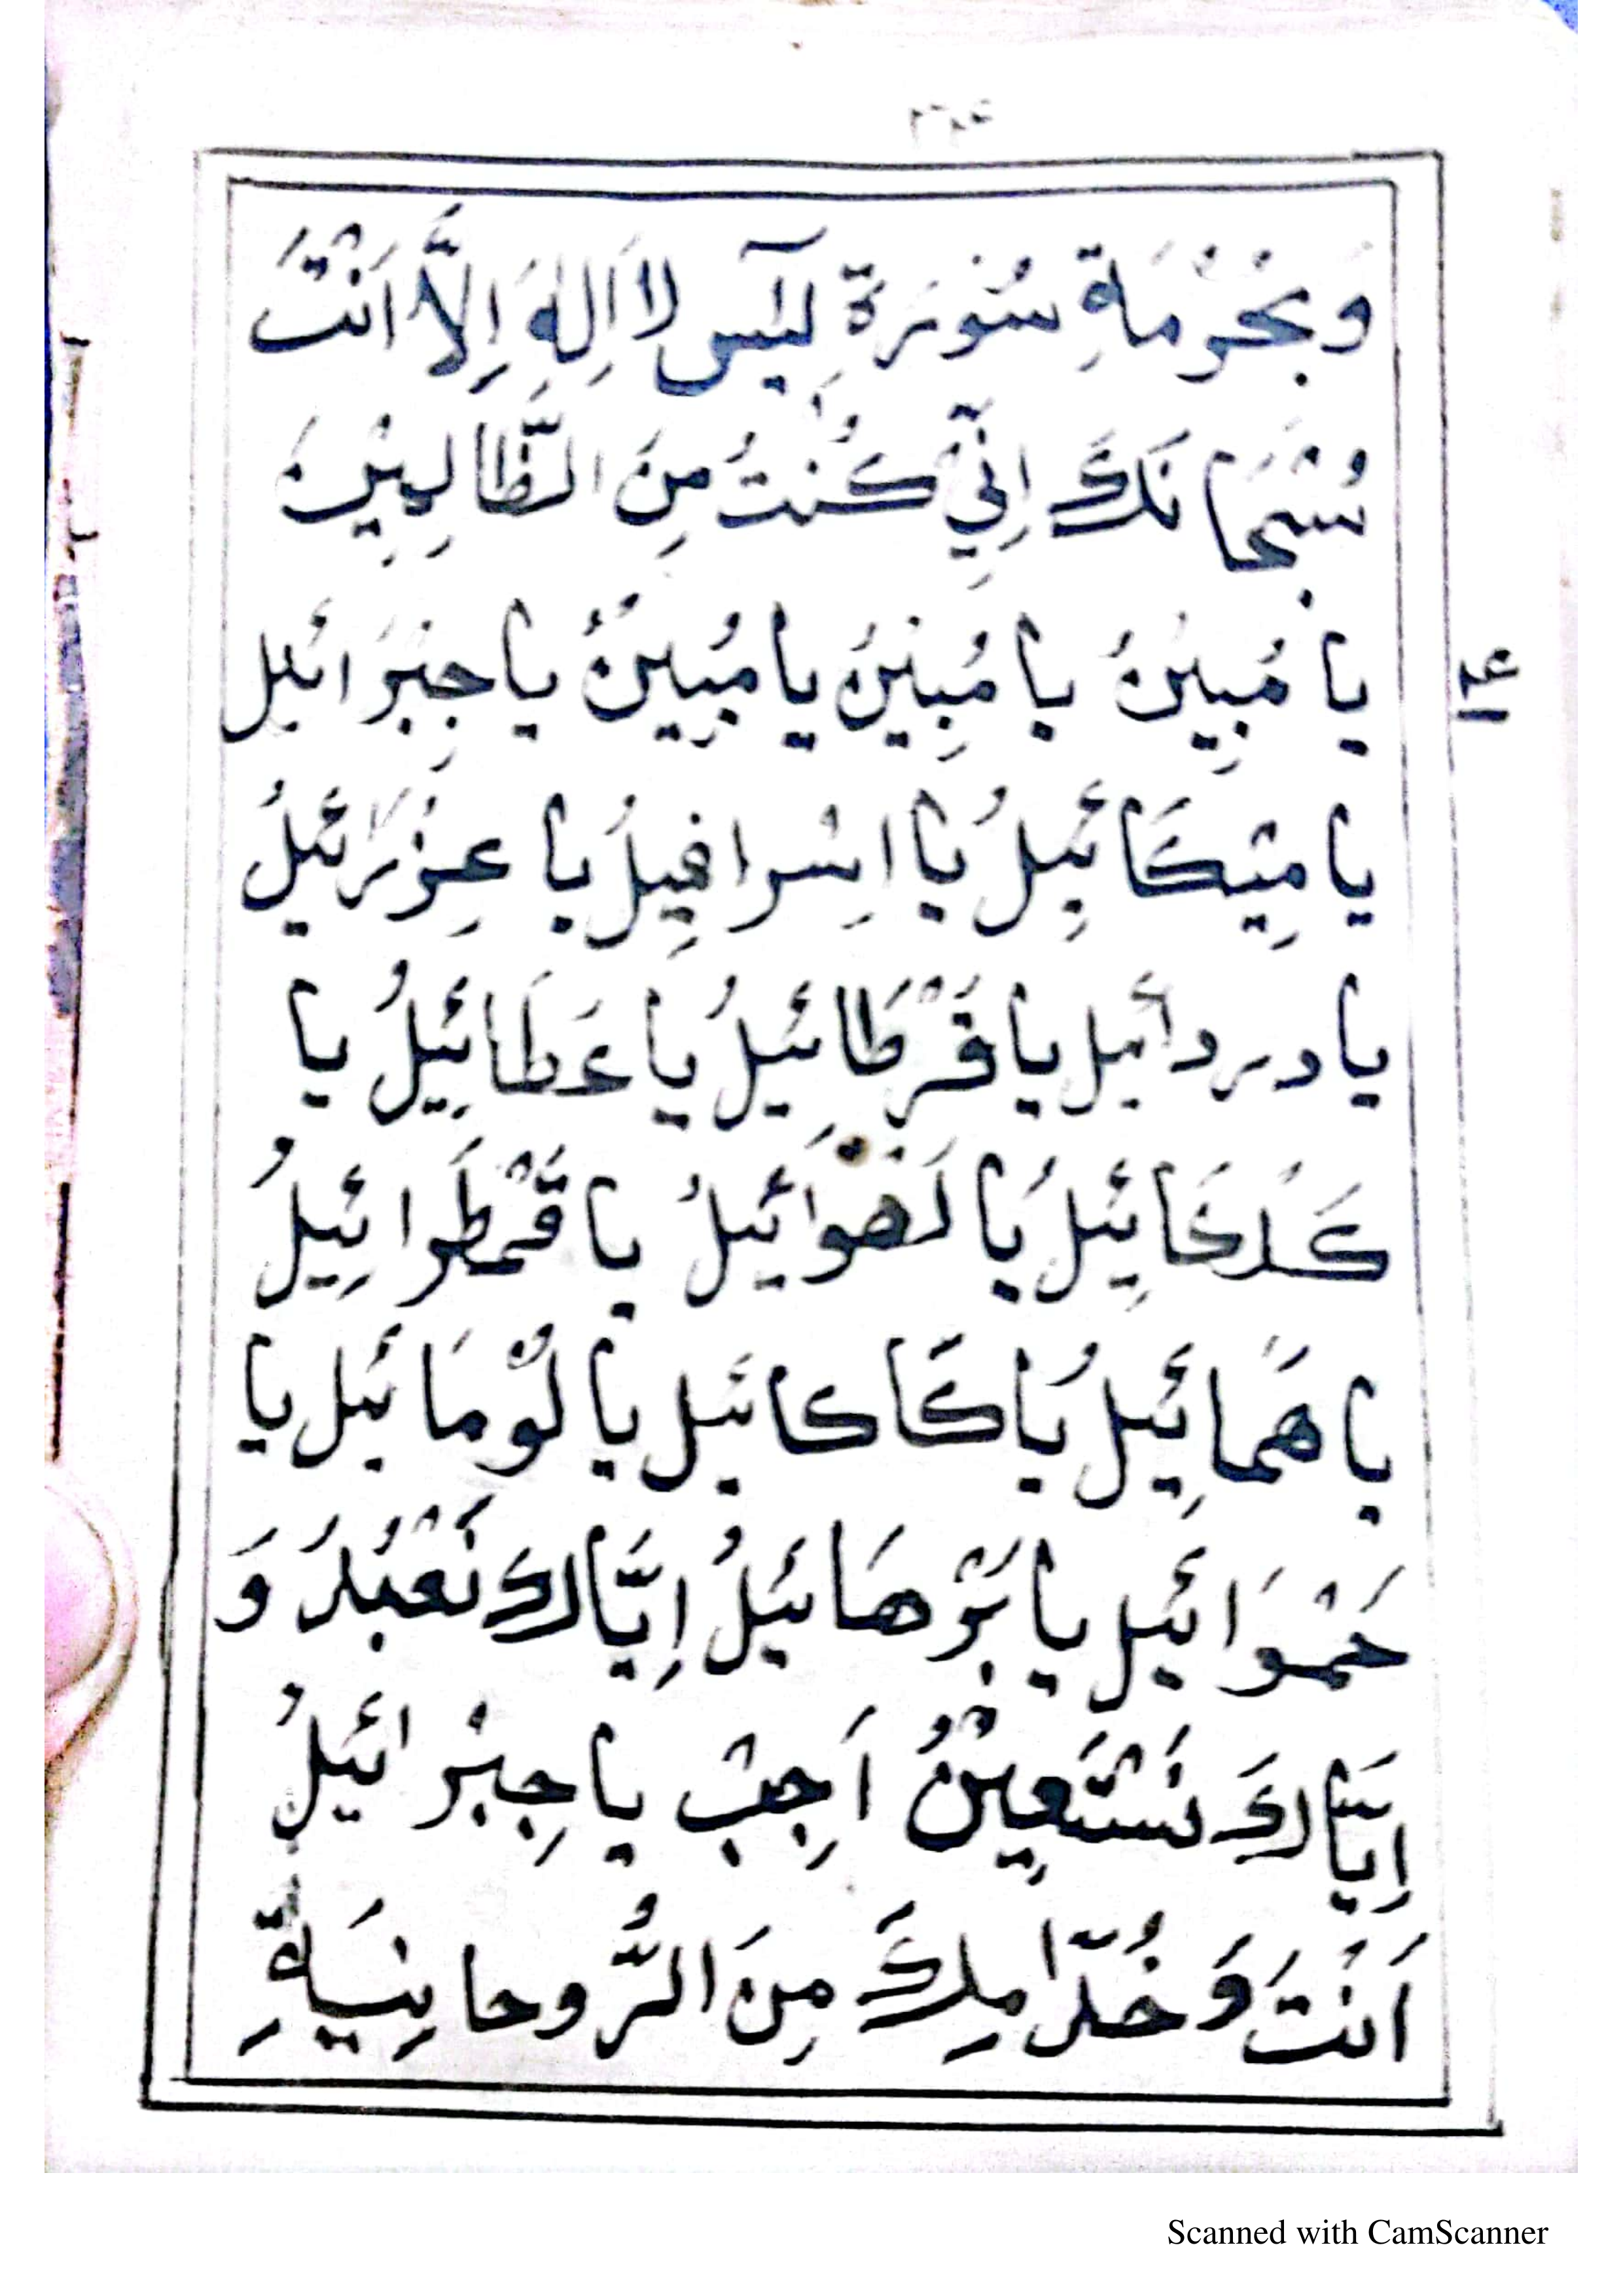 وَبِحُرْمَةِ سُوْرَةِ يٰسٓ لَا اِلٰهَ اِلَّا اَنْتَ
سُبْحَانَكَ اِنِّيْ كُنْتُ مِنَ الظَّالِمِيْنَ
يَا مُبِيْنُ يَا مُبِيْنُ يَا مُبِيْنُ يَا جِبْرَائِيل
يَا مِيْكَائِيلُ يَا اِسْرَافِيلُ يَا عِزْرَائِيلُ
يَا دردائيل يَا قَرْطَائِيلُ يَا عَطَائِيلُ يَا
كَلْكَائِيلُ يَا لَهْوَائِيلُ يَا قَمْطَرائِيلُ
يَا هَمائِيلُ يَا كَاكائيل يَا لَوْمَائِيل يَا
حَمْوَائِيل يَا بَرْهَائِيلُ اِيَّاكَ نَعْبُدُ وَ
اِيَّاكَ نَسْتَعِيْنُ اَجِبْ يَا جِبْرائِيلُ
اَنْتَ وَخُدَّامِكَ مِنَ الرُّوحَانِيَةِ
Scanned with CamScanner